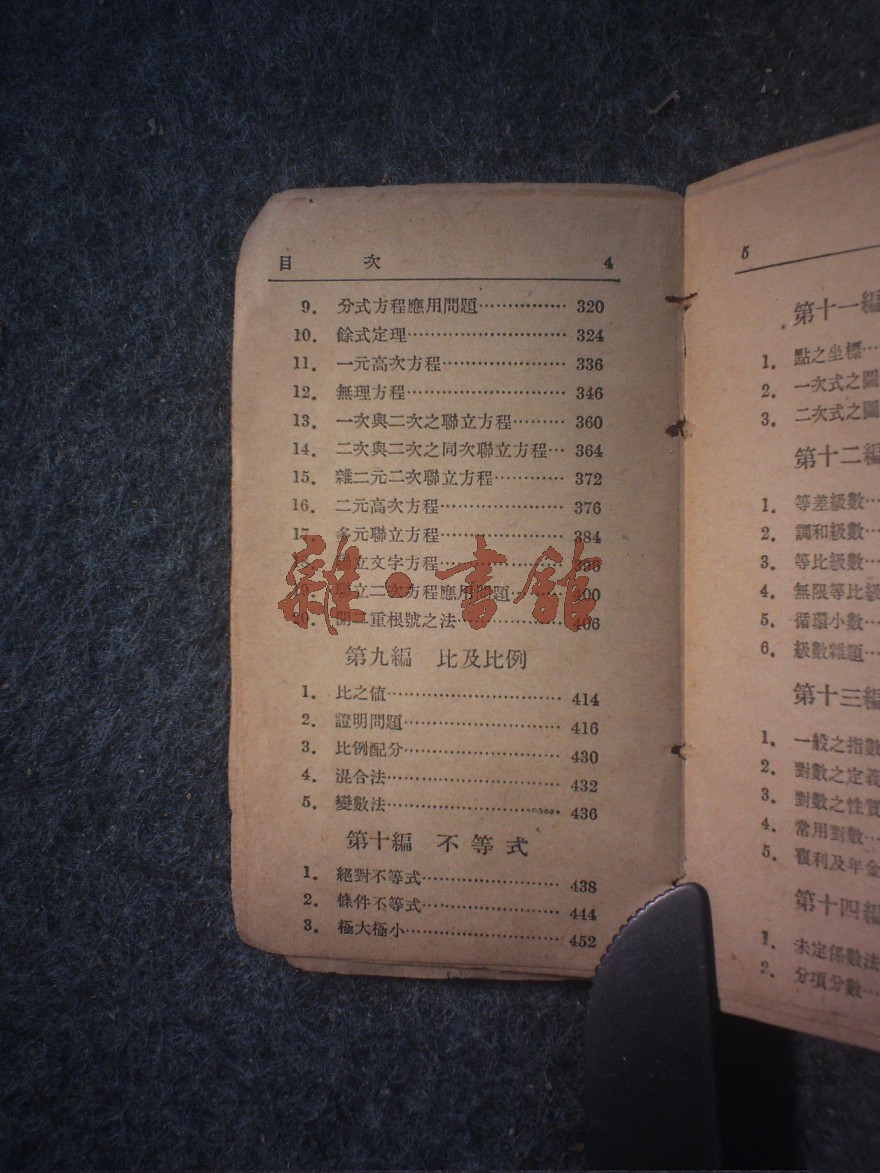 目 次 4
9. 分式方程應用問題…………… 320
10. 餘式定理………………………… 324
11. 一元高次方程…………………… 336
12. 無理方程………………………… 346
13. 一次與二次之聯立方程……… 360
14. 二次與二次之同次聯立方程… 364
15. 雜二元二次聯立方程………… 372
16. 二元高次方程…………………… 376
17. 多元聯立方程…………………… 384
立文字方程……………………
立二次方程應用問題……… 400
20. 開二重根號之法……………… 406
第九編 比及比例
1. 比之值…………………………… 414
2. 證明問題………………………… 416
3. 比例配分………………………… 430
4. 混合法…………………………… 432
5. 變數法…………………………… 436
第十編 不等式
1. 絕對不等式……………………… 438
2. 條件不等式……………………… 444
3. 極大極小………………………… 452
雜·書館
5
第十一編
1. 點之坐標…
2. 一次式之圖
3. 二次式之圖
第十二編
1. 等差級數…
2. 調和級數…
3. 等比級數…
4. 無限等比級
5. 循環小數…
6. 級數雜題…
第十三編
1. 一般之指數
2. 對數之定義
3. 對數之性質
4. 常用對數…
5. 複利及年金
第十四編
1. 未定係數法
2. 分項分數…